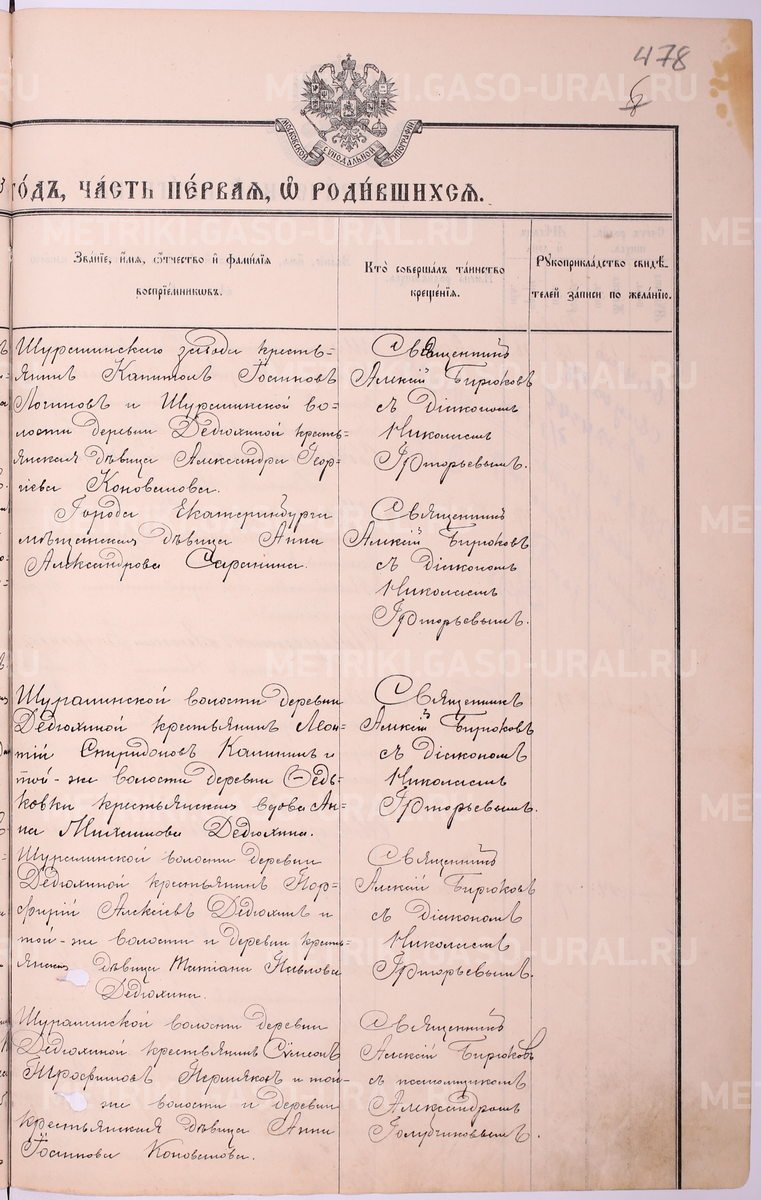 478
6
МОСКОВСКОЙ СѴНОДАЛЬНОЙ ТИПОГРАФІИ
го́дъ, ча́сть пе́рвая, ѡ҆ роди́вшихсѧ.
Зва́нїе, и҆́мѧ, ѻ҆́тчество и҆ фами́лїѧ
воспрїе́мниковъ.
Кто̀ соверша́лъ та́инство
креще́нїѧ.
Рꙋкоприкла́дство свидѣ́-
телей за́писи по жела́нїю.
Шуралинскаго завода кресть-
янинъ Капитонъ Іоанновъ
Логиновъ и Шуралинской во-
лости деревни Дедюхиной кресть-
янская дѣвица Александра Геор-
гіева Коновалова.
Священникъ
Алексій Бирюковъ
съ Діакономъ
Николаемъ
Григорьевымъ.
Города Екатеринбурга
мѣщанская дѣвица Анна
Александрова Саранина.
Священникъ
Алексій Бирюковъ
съ Діакономъ
Николаемъ
Григорьевымъ.
Шуралинской волости деревни
Дедюхиной крестьянинъ Леон-
тій Спиридоновъ Калининъ и
той-же волости деревни Ѳедь-
ковки крестьянская вдова Ан-
на Михаилова Дедюхина.
Священникъ
Алексій Бирюковъ
съ Діакономъ
Николаемъ
Григорьевымъ.
Шуралинской волости деревни
Дедюхиной крестьянинъ Пор-
фирій Алексіевъ Дедюхинъ и
той-же волости и деревни кресть-
янская дѣвица Татіана Павлова
Дедюхина.
Священникъ
Алексій Бирюковъ
съ Діакономъ
Николаемъ
Григорьевымъ.
Шуралинской волости деревни
Дедюхиной крестьянинъ Сѵмеонъ
Трофимовъ Пермяковъ и той-
же волости и деревни
крестьянская дѣвица Анна
Іоаннова Коновалова.
Священникъ
Алексій Бирюковъ
съ псаломщикомъ
Александромъ
Голубчиковымъ.
METRIKI.GASO-URAL.RU